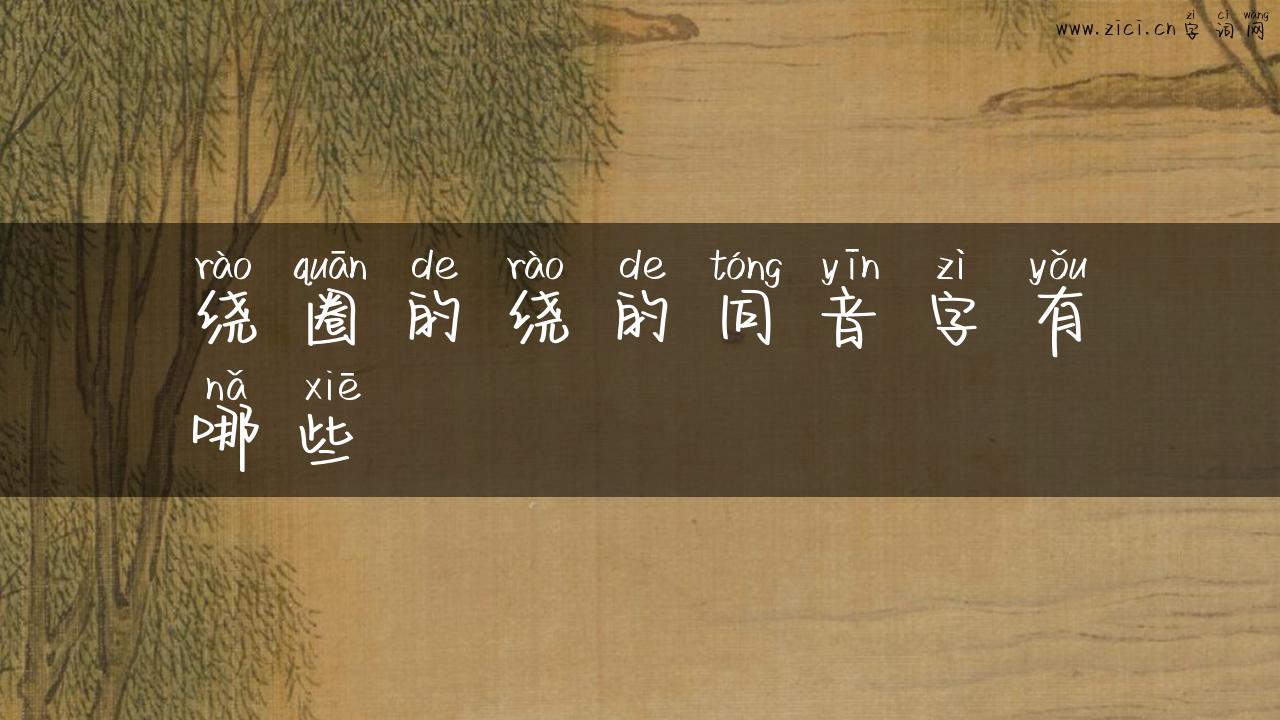 zì cí wǎng
www.zici.cn 字词网
rào quān de rào de tóng yīn zì yǒu
绕圈的绕的同音字有
nǎ xiē
哪些